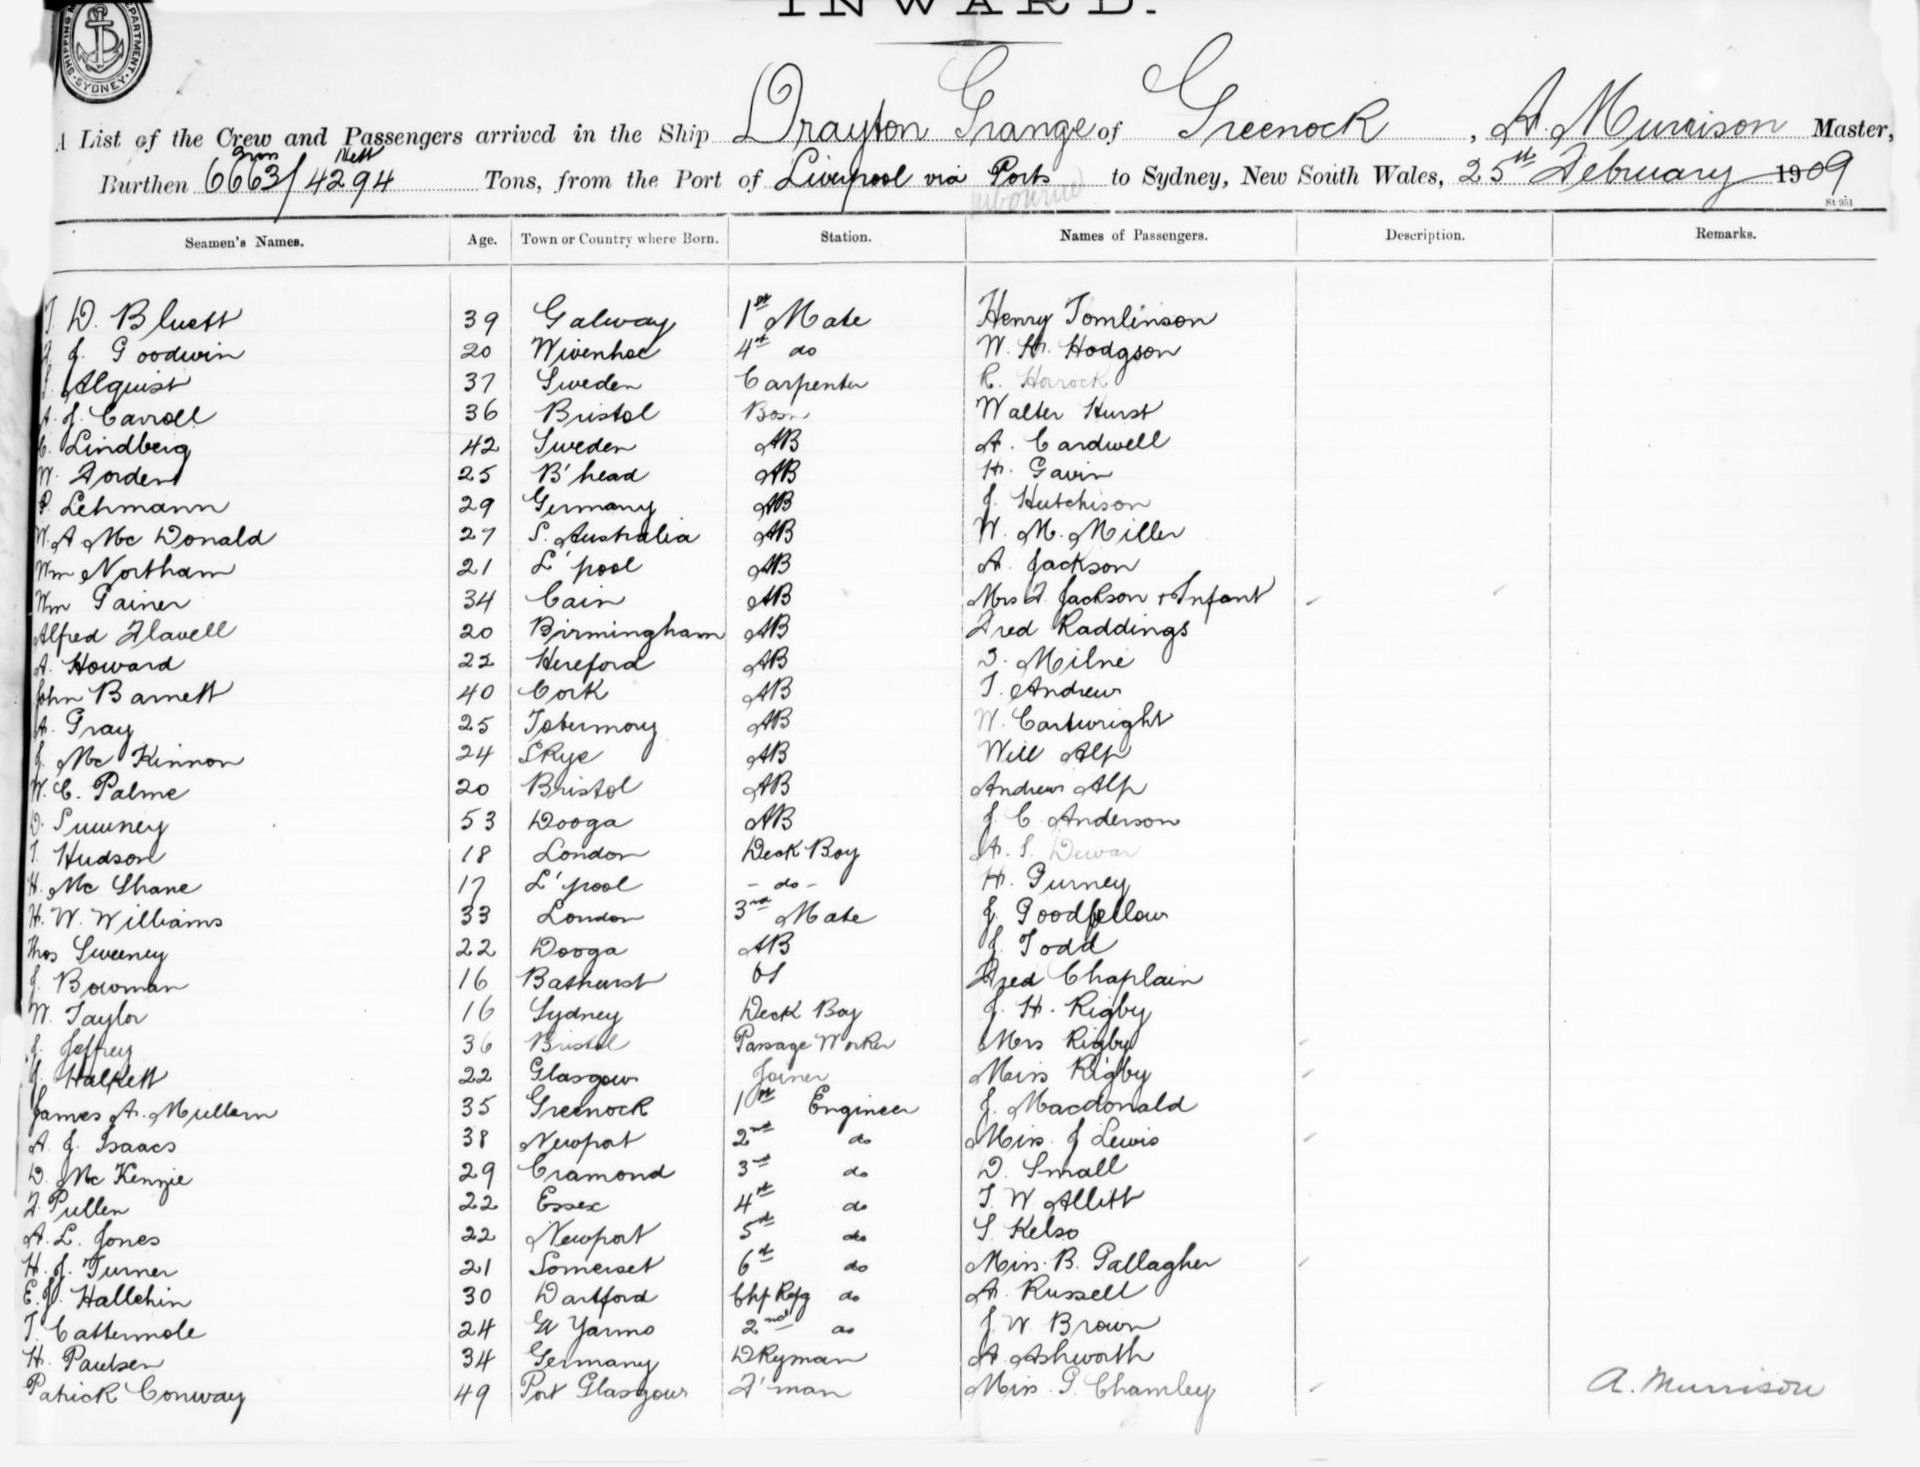 INWARD.
SHIPPING DEPARTMENT. SYDNEY
A List of the Crew and Passengers arrived in the Ship Drayton Grange of Greenock, A. Murrison Master,
Gross Nett
Burthen 6663/4294 Tons, from the Port of Liverpool via Ports to Sydney, New South Wales, 25th February 1909
St 951
Seamen's Names. Age. Town or Country where Born. Station. Names of Passengers. Description. Remarks.
D. Bluett 39 Galway 1st Mate Henry Tomlinson
J. Goodwin 20 Wivenhoe 4th do W. H. Hodgson
Alquist 37 Sweden Carpenter R.
A. J. Carroll 36 Bristol Bosn Walter Hurst
C. Lindberg 42 Sweden AB A. Cardwell
W. Forden 25 B'head AB H. Gavin
P. Lehmann 29 Germany AB J. Hutchison
W. A Mc Donald 27 S. Australia AB W. M. Miller
Wm Northam 21 L'pool AB A. Jackson
Wm Gainer 34 Cain AB Mrs A. Jackson + Infant
Alfred Flavell 20 Birmingham AB Fred Raddings
A. Howard 22 Hereford AB Milne
John Barnett 40 Cork AB T. Andrew
A. Gray 25 Tobermory AB W. Cartwright
J. Mc Kinnon 24 Skye AB Will Alp
W. C. Palme 20 Bristol AB Andrew Alp
D. 53 Dooga AB J. C. Anderson
T. Hudson 18 London Deck Boy A. S. Dewar
H. Mc Shane 17 L'pool - do - H. Gurney
H. W. Williams 33 London 3rd Mate J. Goodfellow
Thos Sweeney 22 Dooga AB J. Todd
J. Bowman 16 Bathurst OS Fred Chaplain
W. Taylor 16 Sydney Deck Boy J. H. Rigby
J. Jeffrey 36 Bristol Passage Worker Mrs Rigby
J. Halkett 22 Glasgow Joiner Miss Rigby
James A. Mullern 35 Greenock 1st Engineer J. Macdonald
A. J. Isaacs 38 Newport 2nd do Miss. J Lewis
D. Mc Kenzie 29 Cramond 3rd do D. Small
F. Pullen 22 Essex 4th do T. W Allitt
A. L. Jones 22 Newport 5th do S. Kelso
H. J. Turner 21 Somerset 6th do Miss. B. Gallagher
E. J. Hallchin 30 Dartford Chf Refg do A. Russell
T. Cattermole 24 Gt Yarmo 2nd do J. W. Brown
H. Paulsen 34 Germany Dkyman A. Ashworth
Patrick Conway 49 Port Glasgow F'man Miss. G. Chamley A. Murrison